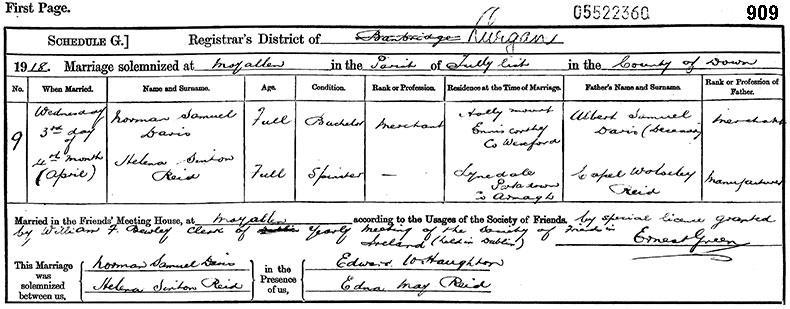 First Page.
05522360
909
SCHEDULE G.] Registrar's District of Banbridge Lurgan
1918. Marriage solemnized at Moyallen in the Parish of Tullylish in the County of Down
No. When Married. Name and Surname. Age. Condition. Rank or Profession. Residence at the Time of Marriage. Father's Name and Surname. Rank or Profession of Father.
9
Wednesday 3rd day of 4th month (April)
Norman Samuel Davis Full Bachelor Merchant Holly mount Enniscorthy Co Wexford Albert Samuel Davis (Deceased) Merchant
Helena Sinton Reid Full Spinster — Lynedale Portadown Co Armagh Capel Wolseley Reid Manufacturer
Married in the Friends' Meeting House, at Moyallen according to the Usages of the Society of Friends. by special license granted
by William F Bewley Clerk of Dublin Yearly Meeting of the Society of Friends in
Ireland (held in Dublin) Ernest Green
This Marriage was solemnized between us,
Norman Samuel Davis
Helena Sinton Reid
in the Presence of us,
Edward W Haughton
Edna May Reid